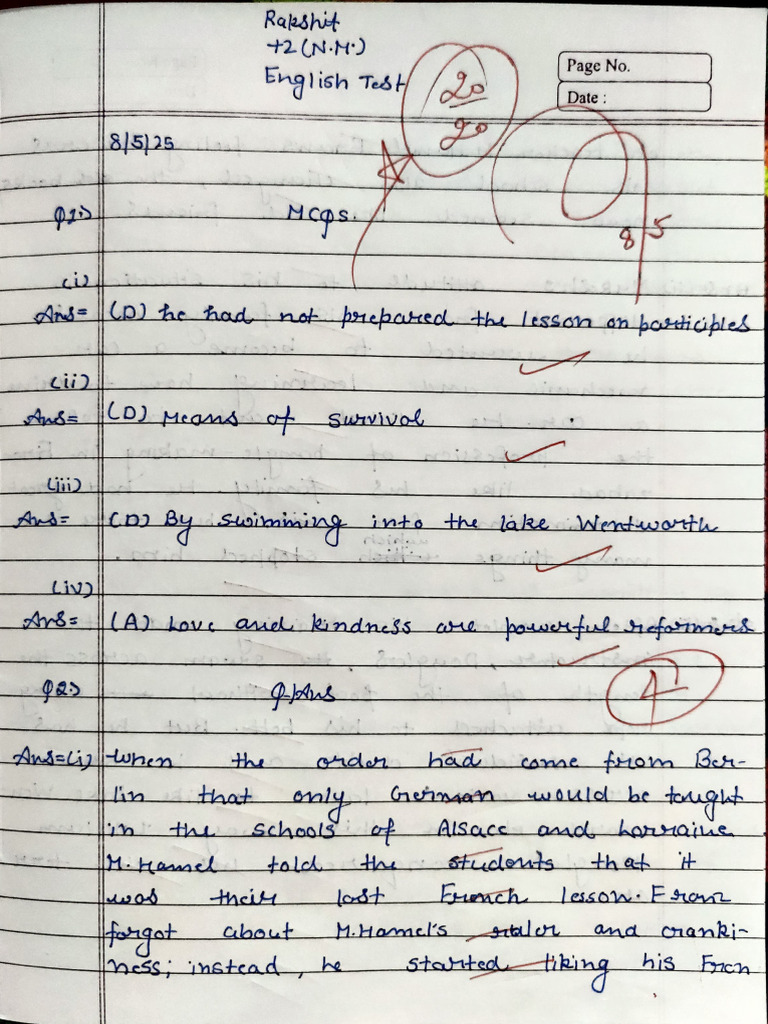 Rakshit
+2 (N.M.)
English Test
20
20
Page No.
Date :
8/5/25
8 5
Q1:) MCQs.
(i)
Ans= (D) he had not prepared the lesson on participles
(ii)
Ans= (D) Means of survival
(iii)
Ans= (D) By swimming into the lake Wentworth
(iv)
Ans= (A) Love and kindness are powerful reformers
4
Q2:) Q/Ans
Ans=(i) When the order had come from Ber-
lin that only German would be taught
in the schools of Alsace and Lorraine
M. Hamel told the students that it
was their last French lesson. Franz
forgot about M. Hamel's ruler and cranki-
ness; instead, he started liking his Fren